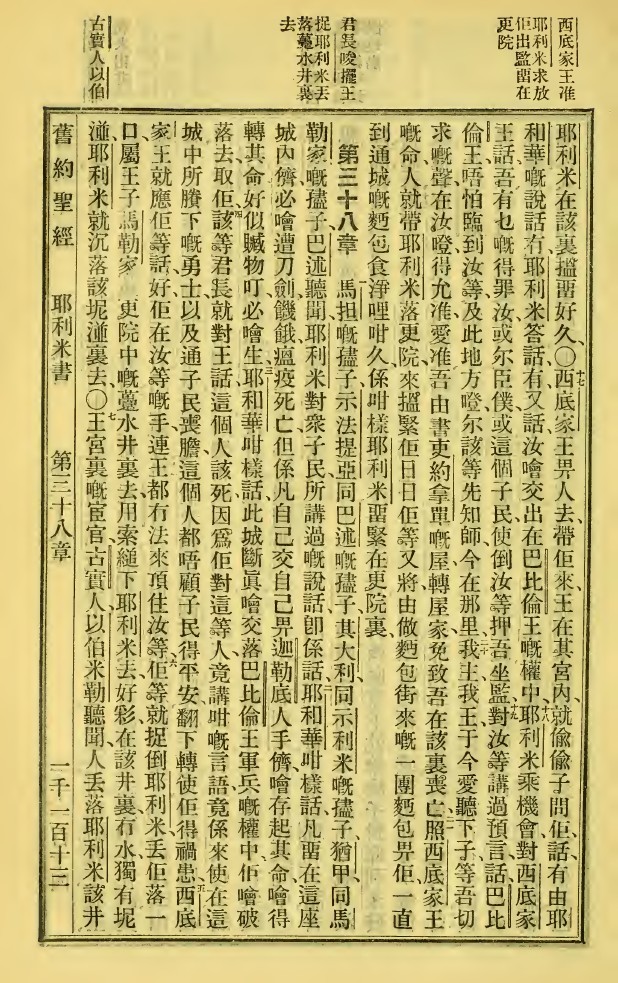 西底家王准
耶利米求放
佢出監畱在
更院
君長唆擺王
捉耶利米丟
落蘯水井裏
去
古實人以伯
耶利米在該裏搵畱好久〇十七西底家王畀人去帶佢來王在其宮內就偸偸子問佢話有由耶
和華嘅說話冇耶利米答話有又話汝噲交出在巴比倫王嘅權中十八耶利米乘機會對西底家
王話吾有乜嘅得罪汝或尔臣僕或這個子民使倒汝等押吾坐監十九對汝等講過預言話巴比
倫王唔怕臨到汝等及此地方噔尔該等先知師今在那里二十我主我王于今愛聽下子等吾切
求嘅聲在汝噔得允准愛准吾由書吏約拿單嘅屋轉屋家免致吾在該裏喪亡二一照西底家王
嘅命人就帶耶利米落更院來搵緊佢日日佢等又將由做麪包街來嘅一團麪包畀佢一直
到通城嘅麪包食淨哩咁久係咁樣耶利米畱緊在更院裏
第三十八章 一馬担嘅孻子示法提亞同巴述嘅孻子其大利同示利米嘅孻子猶甲同馬
勒家嘅孻子巴述聽聞耶利米對衆子民所講過嘅說話卽係話二耶和華咁樣話凡畱在這座
城內儕必噲遭刀劍饑餓瘟疫死亡但係凡自己交自己畀迦勒底人手儕噲存起其命噲得
轉其命好似贓物叮必噲生三耶和華咁樣話此城斷眞噲交落巴比倫王軍兵嘅權中佢噲破
落去取佢四該等君長就對王話這個人該死因爲佢對這等人竟講咁嘅言語竟係來使在這
城中所賸下嘅勇士以及通子民喪膽這個人都唔顧子民得平安翻下轉使佢得禍患五西底
家王就應佢等話好佢在汝等嘅手連王都冇法來頂住汝等六佢等就捉倒耶利米丟佢落一
口屬王子馬勒家更院中嘅蘯水井裏去用索縋下耶利米去好彩在該井裏冇水獨有坭
湴耶利米就沉落該坭湴裏去〇七王宮裏嘅宦官古實人以伯米勒聽聞人丟落耶利米該井
舊約聖經 耶利米書 第三十八章 一千一百十三